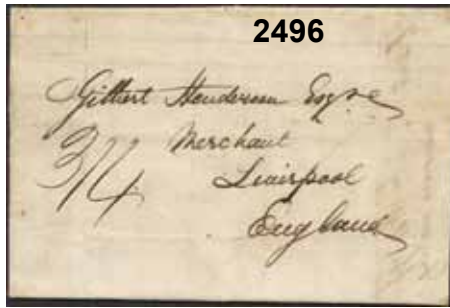 2496
Gilbert Henderson Esqre
3/4
Merchant
Liverpool
England